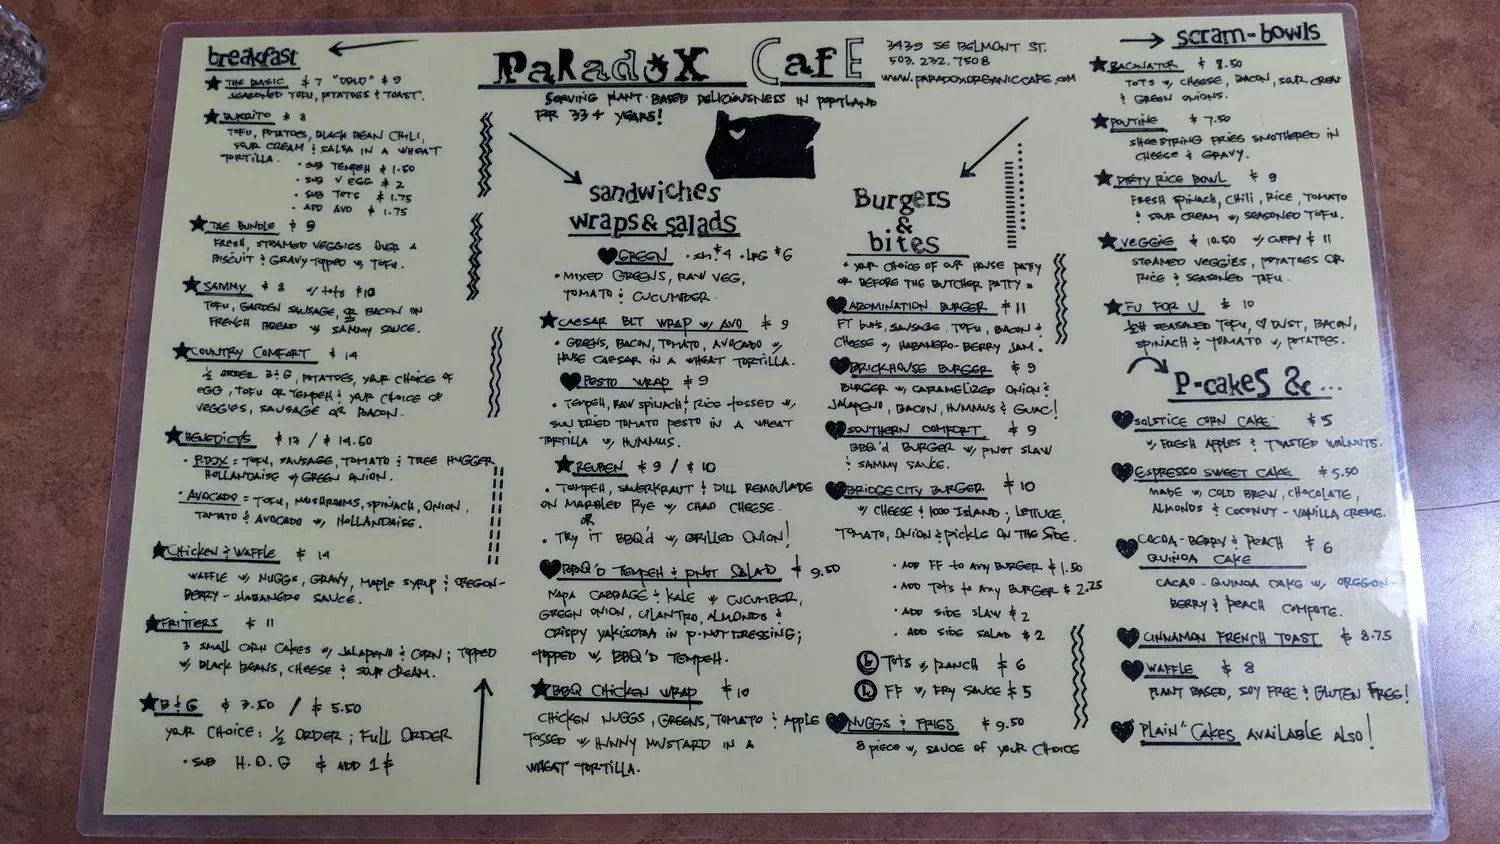 PaRadoX CafE
3439 SE BELMONT ST.
503.232.7508
WWW.PARADOXORGANICCAFE.COM
SERVING PLANT-BASED DELICIOUSNESS IN PORTLAND
FOR 33+ YEARS!
breakfast
THE BASIC $7 "OBLO" $9
SEASONED TOFU, POTATOES & TOAST.
BURRITO $8
TOFU, POTATOES, BLACK BEAN CHILI,
SOUR CREAM & SALSA IN A WHEAT
TORTILLA.
• SUB TEMPEH $1.50
• SUB V EGG $2
• SUB TOTS $1.75
• ADD AVO $1.75
THE BUNDLE $9
FRESH, STEAMED VEGGIES OVER A
BISCUIT & GRAVY TOPPED W/ TOFU.
SAMMY $8 W/ TOTS $10
TOFU, GARDEN SAUSAGE, OR BACON ON
FRENCH BREAD W/ SAMMY SAUCE.
COUNTRY COMFORT $14
½ ORDER B&G, POTATOES, YOUR CHOICE OF
EGG, TOFU OR TEMPEH & YOUR CHOICE OF
VEGGIES, SAUSAGE OR BACON.
BENEDICTS $13 / $14.50
• PDOX = TOFU, SAUSAGE, TOMATO & TREE HUGGER
HOLLANDAISE W/ GREEN ONION.
• AVOCADO = TOFU, MUSHROOMS, SPINACH, ONION,
TOMATO & AVOCADO W/ HOLLANDAISE.
CHICKEN & WAFFLE $14
WAFFLE W/ NUGGS, GRAVY, MAPLE SYRUP & OREGON-
BERRY-HABANERO SAUCE.
FRITTERS $11
3 SMALL CORN CAKES W/ JALAPENO & CORN; TOPPED
W/ BLACK BEANS, CHEESE & SOUR CREAM.
B&G $3.50 / $5.50
YOUR CHOICE: ½ ORDER; FULL ORDER
• SUB H.O.G $ ADD 1$
sandwiches
wraps & salads
GREEN • SM $4 • LRG $6
• MIXED GREENS, RAW VEG,
TOMATO & CUCUMBER.
CAESAR BLT WRAP W/ AVO $9
• GREENS, BACON, TOMATO, AVOCADO W/
HOUSE CAESAR IN A WHEAT TORTILLA.
PESTO WRAP $9
• TEMPEH, RAW SPINACH & RICE TOSSED W/
SUN DRIED TOMATO PESTO IN A WHEAT
TORTILLA W/ HUMMUS.
REUBEN $9 / $10
• TEMPEH, SAUERKRAUT & DILL REMOULADE
ON MARBLED RYE W/ CHAO CHEESE.
OR
• TRY IT BBQ'd W/ GRILLED ONION!
BBQ'D TEMPEH & PNUT SALAD $9.50
NAPA CABBAGE & KALE W/ CUCUMBER,
GREEN ONION, CILANTRO, ALMONDS &
CRISPY YAKISOBA IN P-NUT DRESSING;
TOPPED W/ BBQ'D TEMPEH.
BBQ CHICKEN WRAP $10
CHICKEN NUGGS, GREENS, TOMATO & APPLE
TOSSED W/ HUNNY MUSTARD IN A
WHEAT TORTILLA.
Burgers
&
bites
* YOUR CHOICE OF OUR HOUSE PATTY
OR BEFORE THE BUTCHER PATTY *
ABOMINATION BURGER $11
FT BUNS, SAUSAGE, TOFU, BACON &
CHEESE W/ HABANERO-BERRY JAM.
BRICKHOUSE BURGER $9
BURGER W/ CARAMELIZED ONION &
JALAPENO, BACON, HUMMUS & GUAC!
SOUTHERN COMFORT $9
BBQ'd BURGER W/ PNUT SLAW
& SAMMY SAUCE.
BRIDGE CITY BURGER $10
W/ CHEESE & 1000 ISLAND; LETTUCE,
TOMATO, ONION & PICKLE ON THE SIDE.
• ADD FF TO ANY BURGER $1.50
• ADD TOTS TO ANY BURGER $2.25
• ADD SIDE SLAW $2
• ADD SIDE SALAD $2
TOTS W/ RANCH $6
FF W/ FRY SAUCE $5
NUGGS & FRIES $9.50
8 PIECE W/ SAUCE OF YOUR CHOICE
scram-bowls
BACONATOR $8.50
TOTS W/ CHEESE, BACON, SOUR CREAM
& GREEN ONIONS.
POUTINE $7.50
SHOESTRING FRIES SMOTHERED IN
CHEESE & GRAVY.
DIRTY RICE BOWL $9
FRESH SPINACH, CHILI, RICE, TOMATO
& SOUR CREAM W/ SEASONED TOFU.
VEGGIE $10.50 W/ CURRY $11
STEAMED VEGGIES, POTATOES OR
RICE & SEASONED TOFU.
FU FOR U $10
SEASONED TOFU, ♥ DUST, BACON,
SPINACH & TOMATO W/ POTATOES.
P-cakes & ...
SOLSTICE CORN CAKE $5
W/ FRESH APPLES & TOASTED WALNUTS.
ESPRESSO SWEET CAKE $5.50
MADE W/ COLD BREW, CHOCOLATE,
ALMONDS & COCONUT-VANILLA CREME.
COCOA-BERRY & PEACH $6
QUINOA CAKE
CACAO-QUINOA CAKE W/ OREGON-
BERRY & PEACH COMPOTE.
CINNAMON FRENCH TOAST $8.75
WAFFLE $8
PLANT BASED, SOY FREE & GLUTEN FREE!
"PLAIN" CAKES AVAILABLE ALSO!